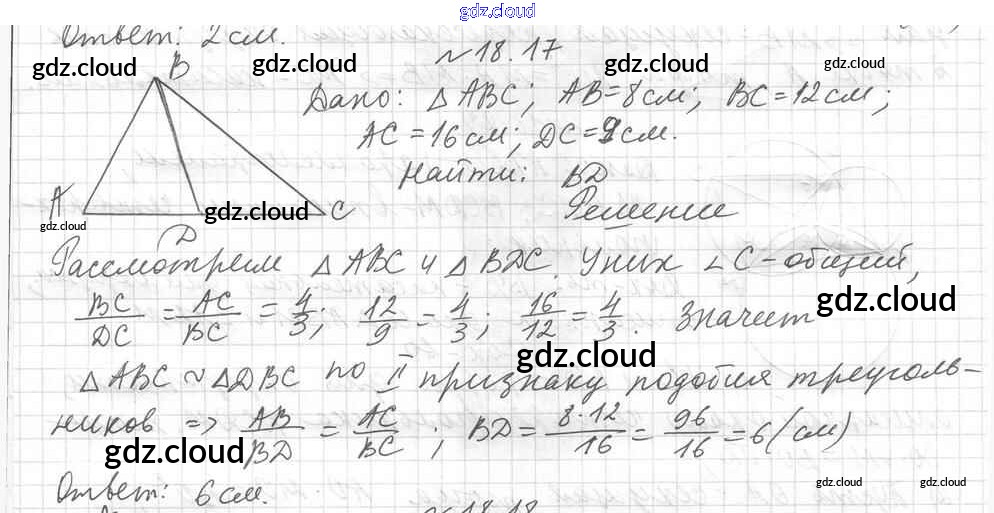 gdz.cloud
Ответ: 2 см.
№ 18.17
gdz.cloud gdz.cloud gdz.cloud gdz.cloud
B
Дано: △ ABC; AB = 8 см; BC = 12 см;
AC = 16 см; DC = 9 см.
Найти: BD
A gdz.cloud C Решение
gdz.cloud
D
Рассмотрим △ ABC и △ BDC. У них ∠C - общий,
BC/DC = AC/BC = 4/3; 12/9 = 4/3; 16/12 = 4/3. Значит
gdz.cloud
gdz.cloud
△ ABC ~ △DBC по II признаку подобия треуголь-
ников => AB/BD = AC/BC; BD = 8·12/16 = 96/16 = 6 (см)
gdz.cloud
Ответ: 6 см.
gdz.cloud gdz.cloud
№ 18.18